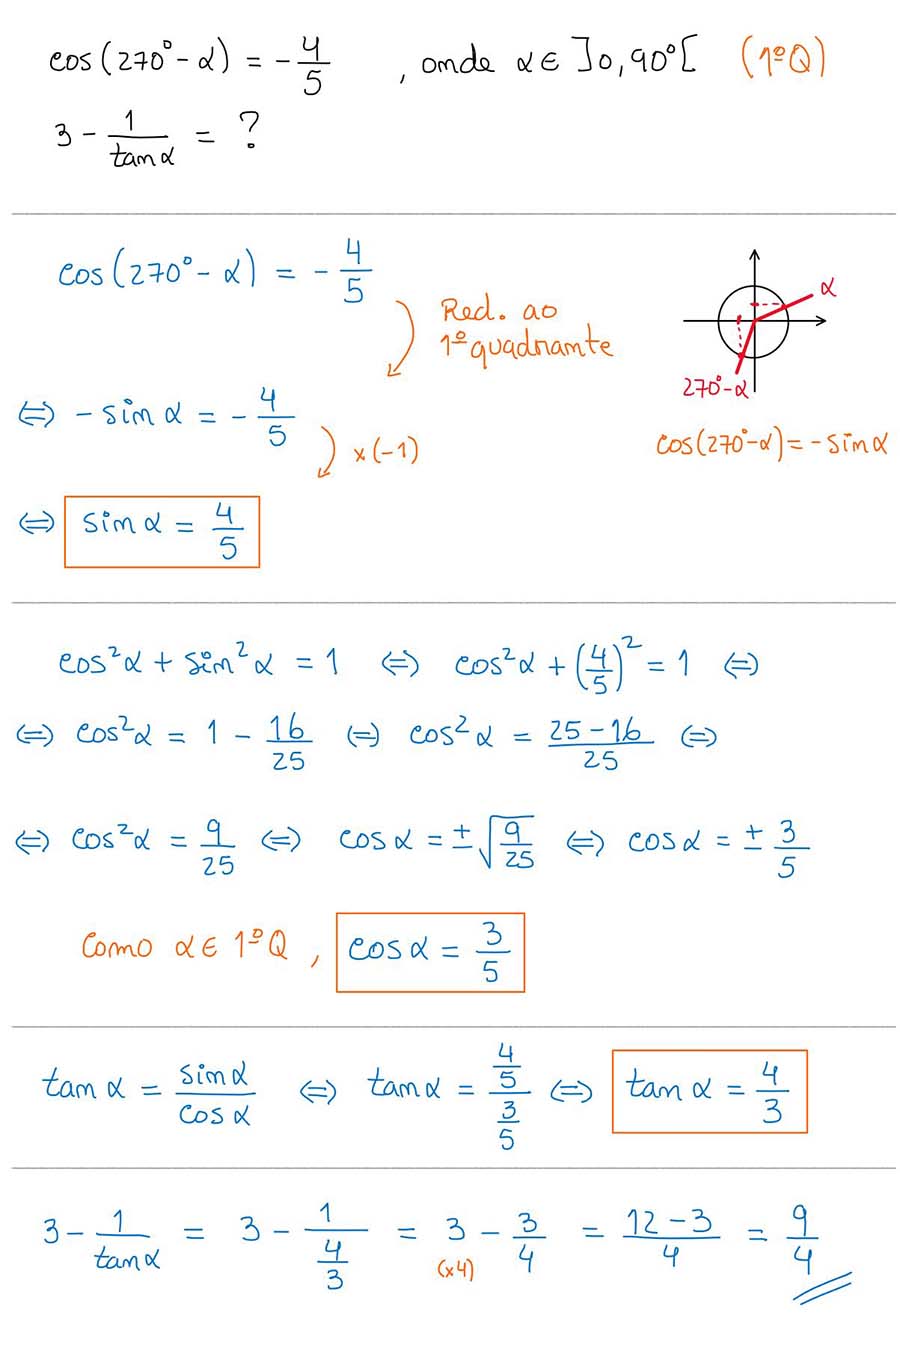 cos(270° - α) = - 4/5 , onde α ∈ ]0, 90°[ (1ºQ)
3 - 1/tan α = ?
cos(270° - α) = - 4/5
Red. ao
1º quadrante
α
270° - α
cos(270° - α) = - sin α
⇔ - sin α = - 4/5
× (-1)
⇔ sin α = 4/5
cos²α + sin²α = 1 ⇔ cos²α + (4/5)² = 1 ⇔
⇔ cos²α = 1 - 16/25 ⇔ cos²α = (25 - 16)/25 ⇔
⇔ cos²α = 9/25 ⇔ cos α = ± √(9/25) ⇔ cos α = ± 3/5
Como α ∈ 1ºQ , cos α = 3/5
tan α = sin α/cos α ⇔ tan α = (4/5)/(3/5) ⇔ tan α = 4/3
3 - 1/tan α = 3 - 1/(4/3) = 3 - 3/4 = (12 - 3)/4 = 9/4
(×4)